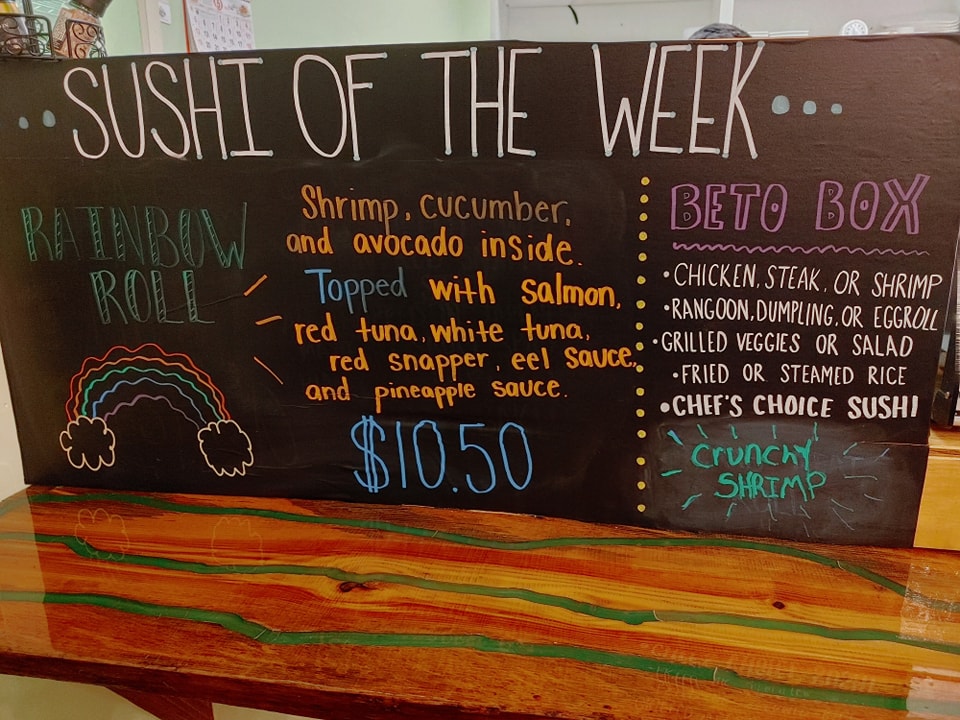 SUSHI OF THE WEEK...
RAINBOW
ROLL
Shrimp, cucumber,
and avocado inside.
Topped with salmon,
red tuna, white tuna,
red snapper, eel sauce,
and pineapple sauce.
$10.50
BETO BOX
•CHICKEN, STEAK, OR SHRIMP
•RANGOON, DUMPLING, OR EGGROLL
•GRILLED VEGGIES OR SALAD
•FRIED OR STEAMED RICE
•CHEF'S CHOICE SUSHI
CRUNCHY
SHRIMP